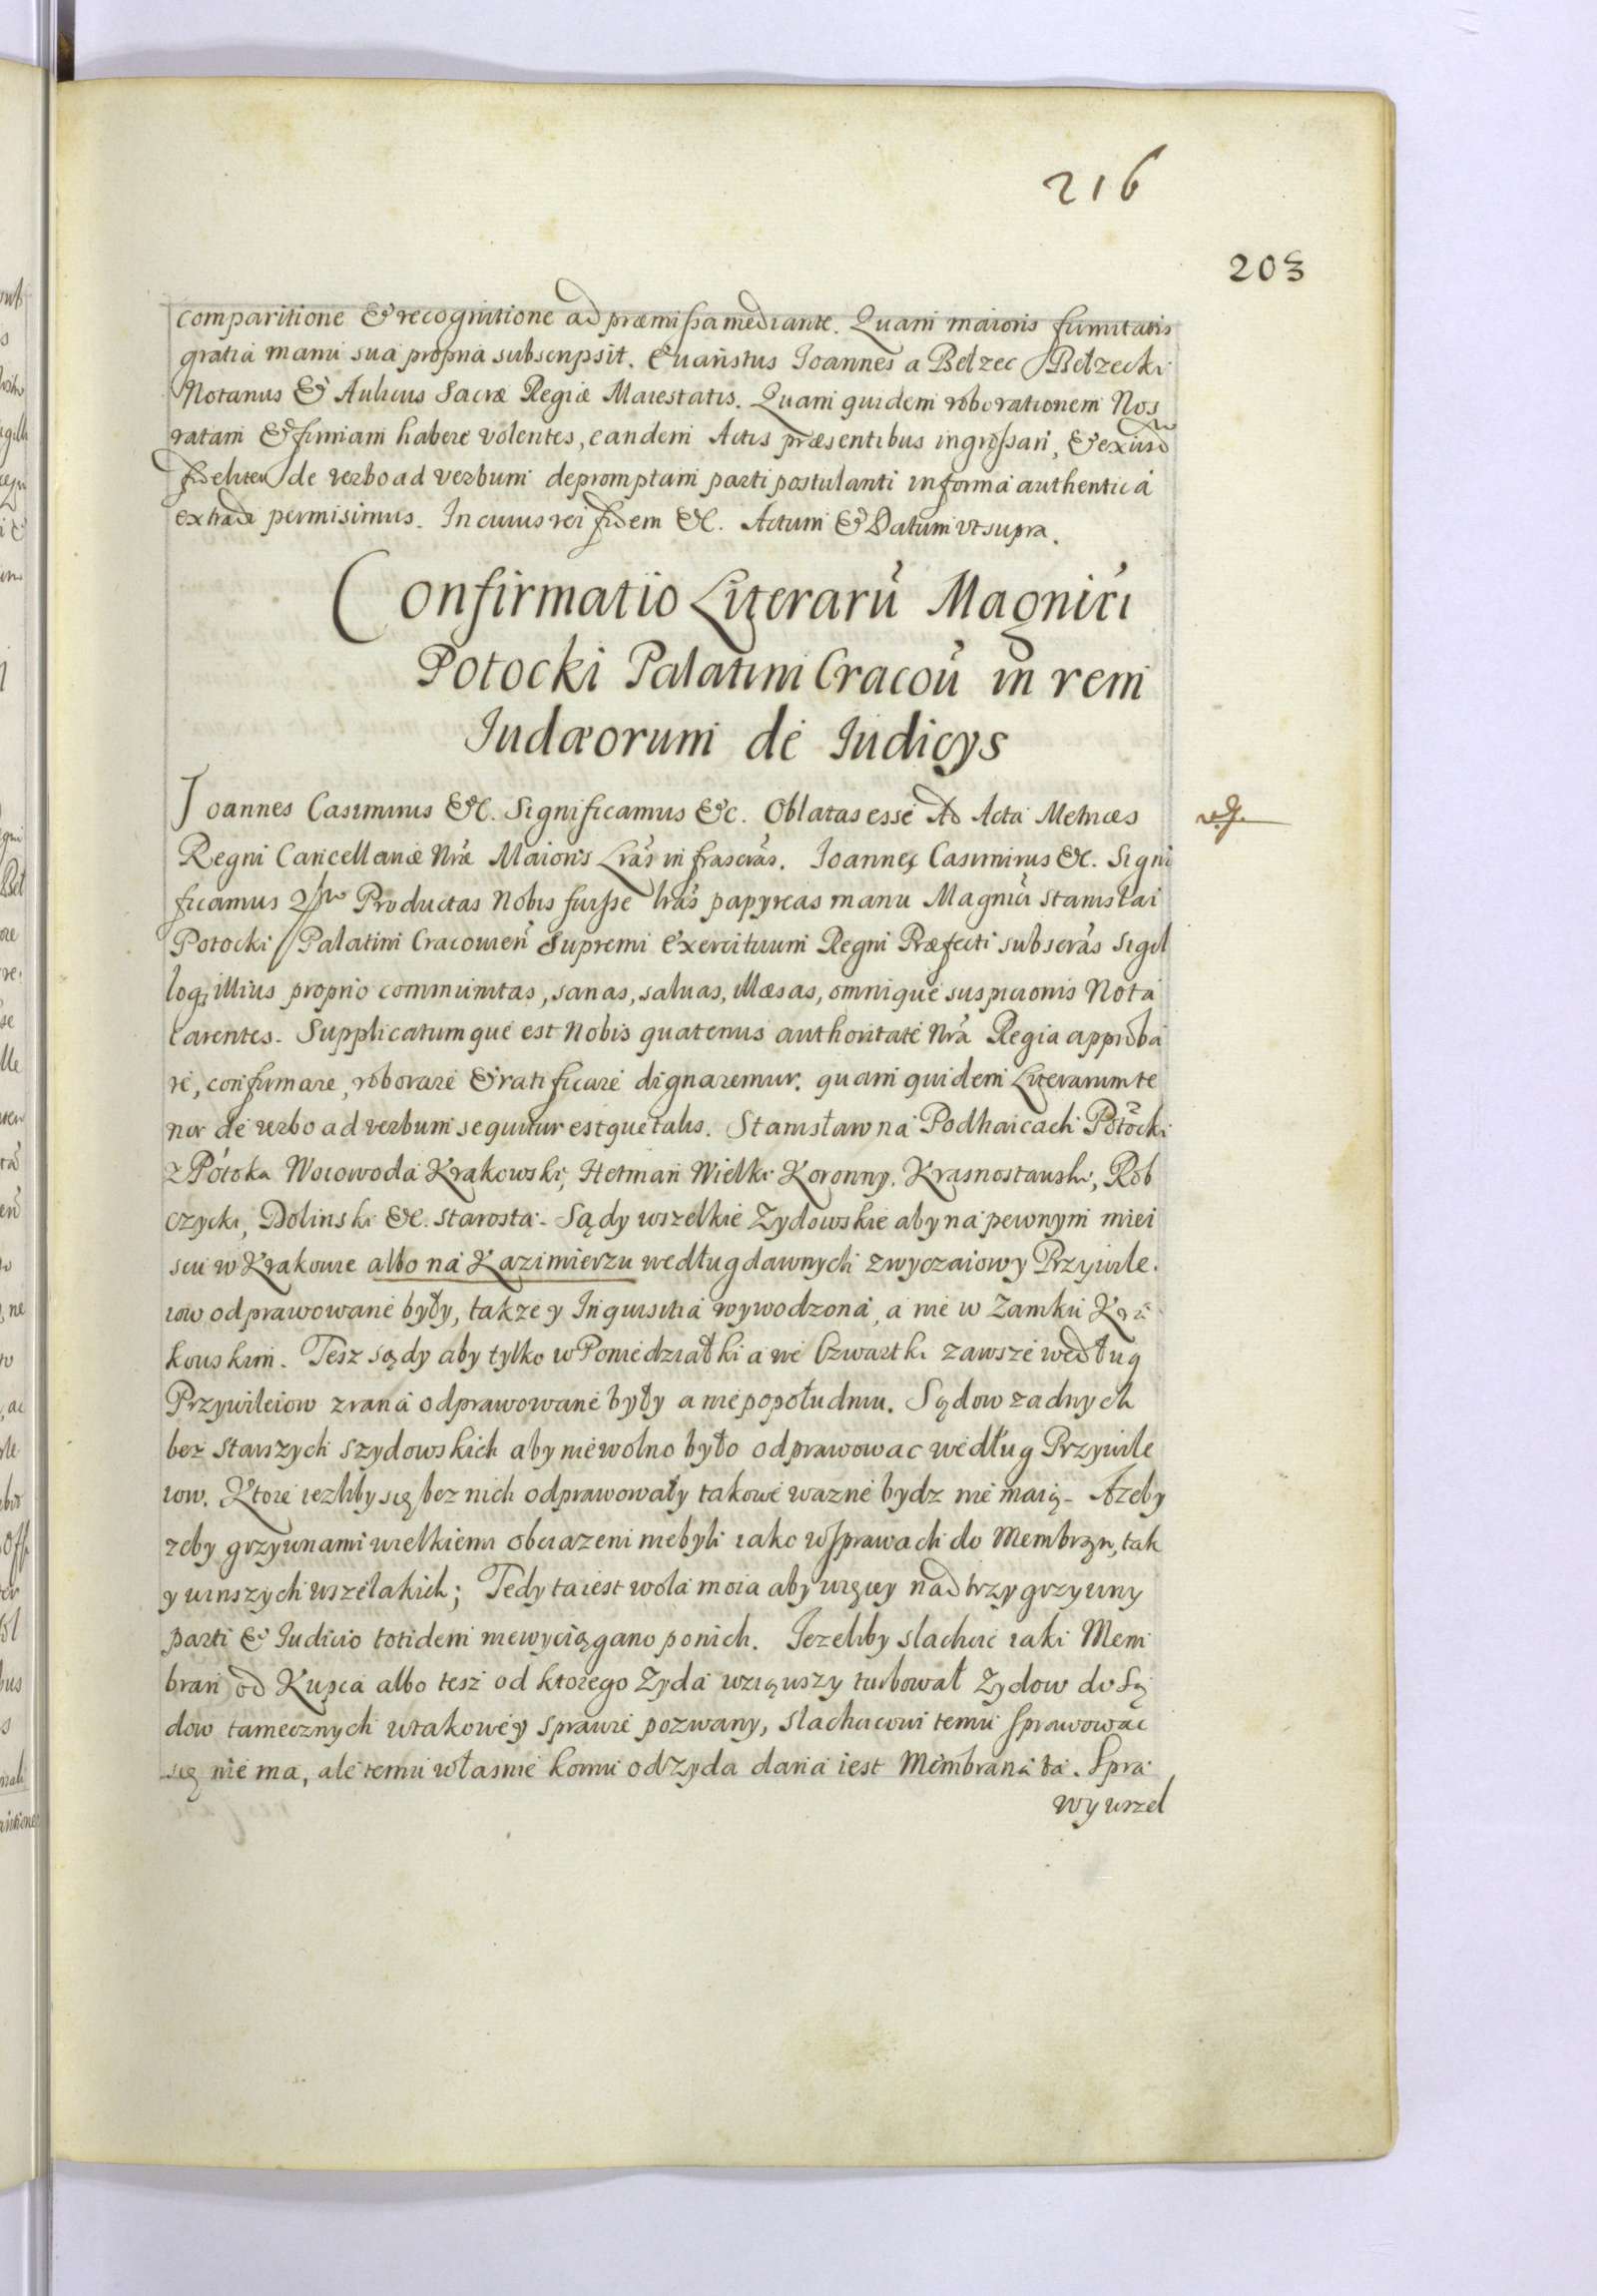 216
203
comparitione & recognitione ad præmissa mediante. Quam maioris firmitatis
gratia manu sua propria subscripsit. Euaristus Ioannes a Bełzec Bełzecki
Notarius & Aulicus Sacræ Regiæ Maiestatis. Quam quidem roborationem Nos
ratam & firmam habere volentes, eandem Actis præsentibus ingrossari, & exiisd
fideliter de verbo ad verbum depromptam parti postulanti in forma authentica
extradi permisimus. In cuius rei fidem &c. Actum & Datum vt supra.
Confirmatio Literarũ Magnici
Potocki Palatini Cracoũ in rem
Iudæorum de Iudicys
Ioannes Casimirus &c. Significamus &c. Oblatas esse Ad Acta Metrices
Regni Cancellariæ Nræ Maioris Lras infrascras. Ioannes Casimirus &c. Signi
ficamus Productas Nobis fuisse lras papyreas manu Magnici Stanislai
Potocki Palatini Cracouieñ Supremi Exercituum Regni Præfecti subscras Sigil
loq; illius proprio communitas, sanas, saluas, illæsas, omnique suspicionis Nota
carentes. Supplicatumque est Nobis quatenus authoritate Nra Regia approba
re, confirmare, roborare & ratificare dignaremur. quam quidem Literarum te
nor de verbo ad verbum sequitur estque talis. Stanisław na Podhaicach Potocki
z Potoka Woiowoda Krakowski, Hetman Wielki Koronny. Krasnostawski, Rob
czycki, Dolinski &c. Starosta. Sądy wszelkie Zydowskie aby na pewnym miei
scu w Krakowie albo na Kazimierzu według dawnych zwyczaiow y Przywile.
iow odprawowane były, takze y Inquisitia wywodzona, a nie w Zamku Kra
kowskim. Tesz sądy aby tylko w Poniedziałki a we Czwartki zawsze według
Przywileiow z rana odprawowane były a nie popołudniu. Sądow zadnych
bez starszych szydowskich aby niewolno było odprawowac według Przywile
iow. Ktore iezliby się bez nich odprawowały takowe wazne bydz nie maią. Azeby
zeby grzywnami wielkiemi obciazeni niebyli iako w sprawach do Membran, tak
y winszych wszelakich; Tedy ta iest wola moia aby więcy nad trzy grzywny
parti & Iudicio totidem niewyciągano ponich. Iezeliby slachcic iaki Mem
bran od Kupca albo tesz od ktorego Zyda wziąwszy turbował Zydow do Są
dow tamecznych w takowey sprawie pozwany, slachcicowi temu sprawowac
się nie ma, ale temu własnie komu od Zyda dana iest Membrana ta. Spra
wy wszel